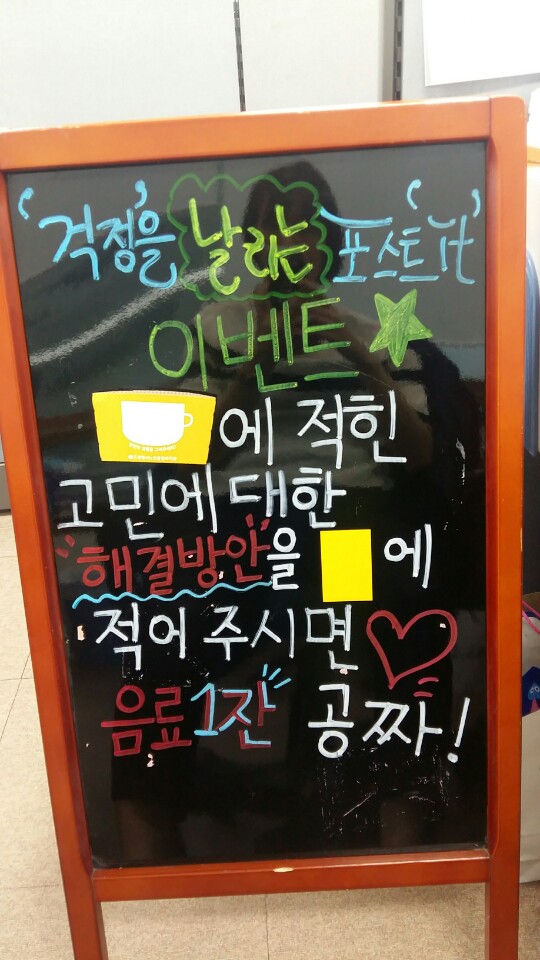 '걱정'을 날리는 '포스트It'
이벤트
에 적힌
고민에 대한
"해결방안"을 에
적어 주시면
음료 1잔 공짜!